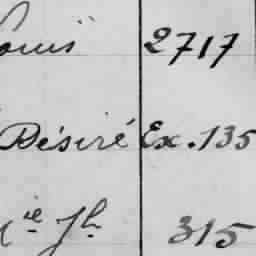 Louis 2717
Désiré Ex. 135
Jh 315